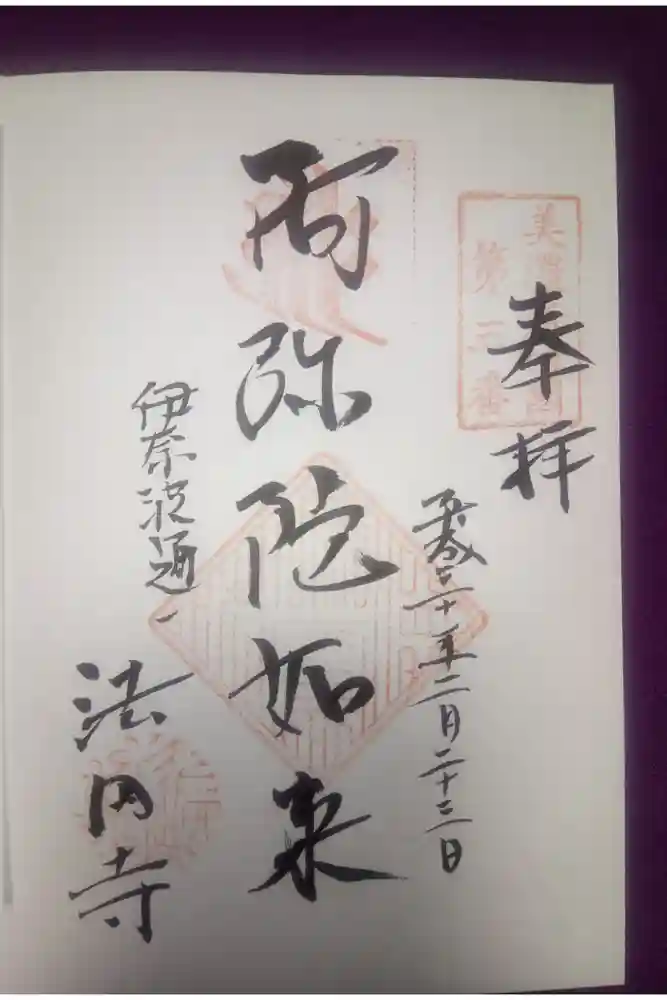 奉拝
美濃国
第三番
平成三十年二月二十二日
阿弥陀如来
伊奈波通一
法円寺